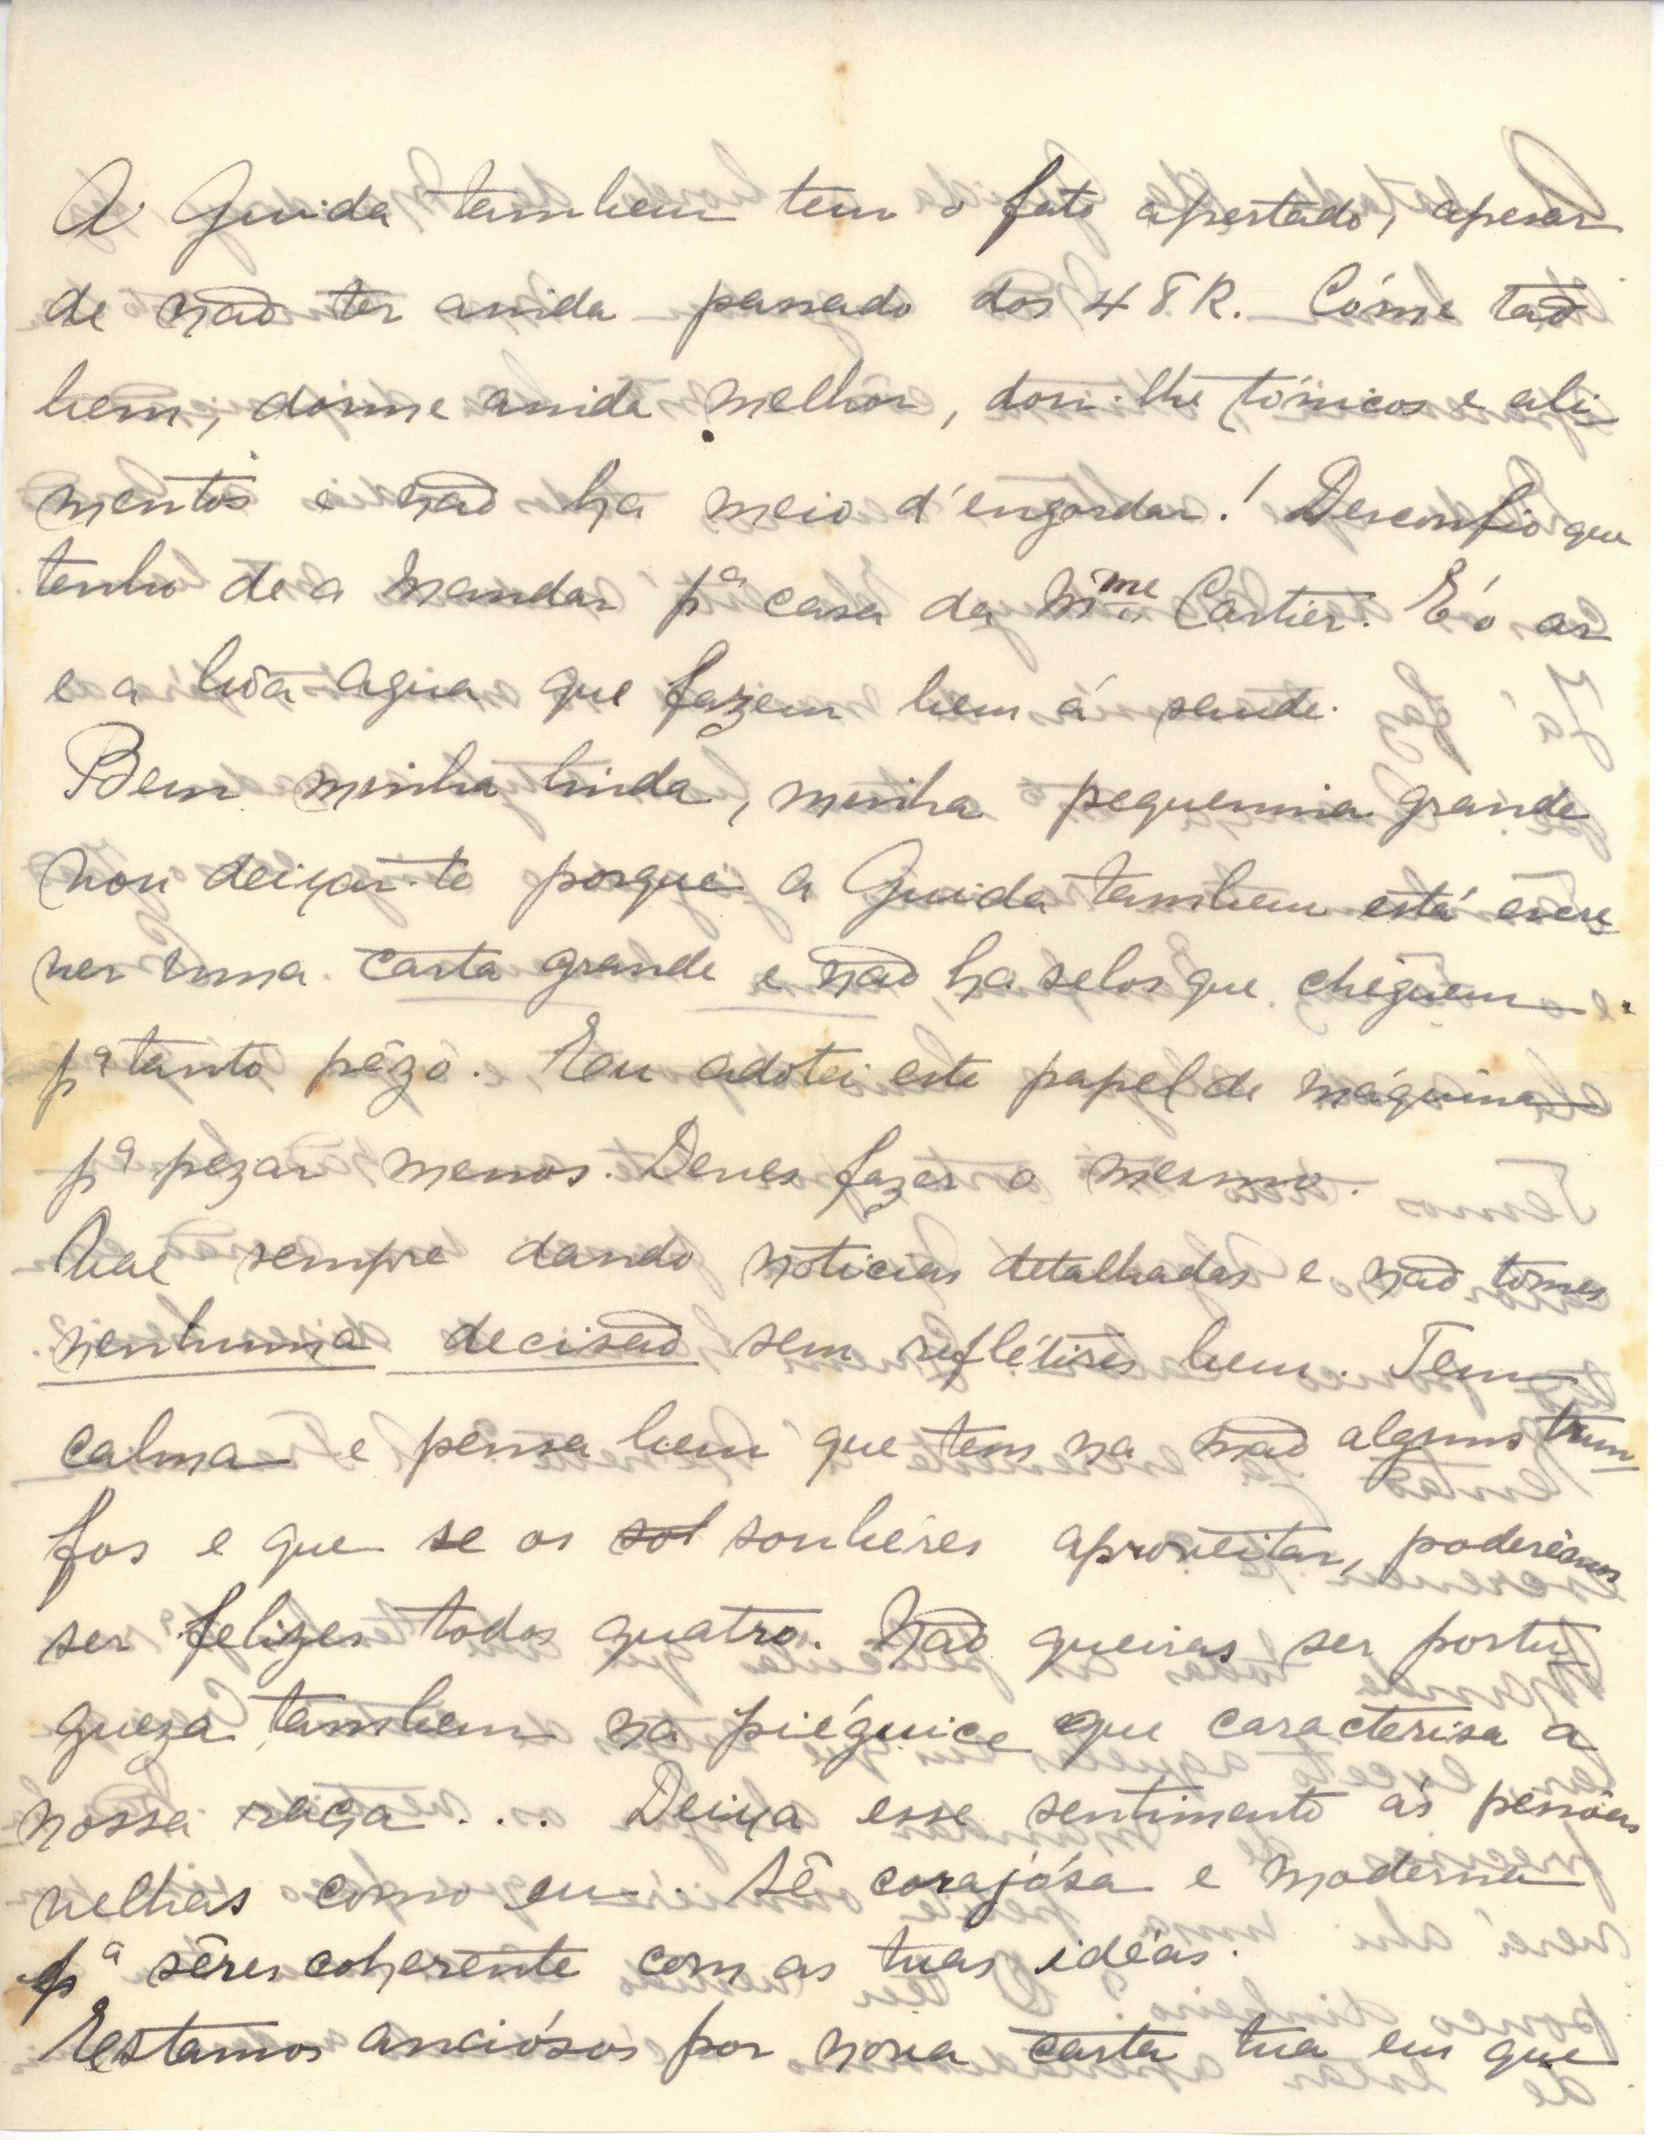 A Guida tambem tem o fato apertado, apesar
de não ter ainda passado dos 48K. Cóme tão
bem, dorme ainda melhor, dou-lhe tónicos e ali
mentos e não ha meio d'engordar! Desconfio que
tenho de a mandar pª casa da Mme Cartier. É o ar
e a bôa agua que fazem bem á saude.
Bem minha linda, minha pequenina grande
vou deixar-te porque a Guida tambem está escre
ver uma carta grande e não ha selos que cheguem
pª tanto pêzo. Eu adotei este papel de máquina
pª pezar menos. Deves fazer o mesmo.
Vae sempre dando noticias detalhadas e não tomes
nenhuma decisão sem reflétires bem. Tem
calma e pensa bem que tens na mão alguns trun
fos e que se os sol soubéres aproveitar, poderêmos
ser felizes todos quatro. Não queiras ser portu
gueza tambem na piéguice que caracterisa a
nossa raça... Deixa esse sentimento ás pessôas
velhas como eu. Sê corajósa e moderna
pª sêres coherente com as tuas idéas.
Estamos anciósos por nova carta tua em que